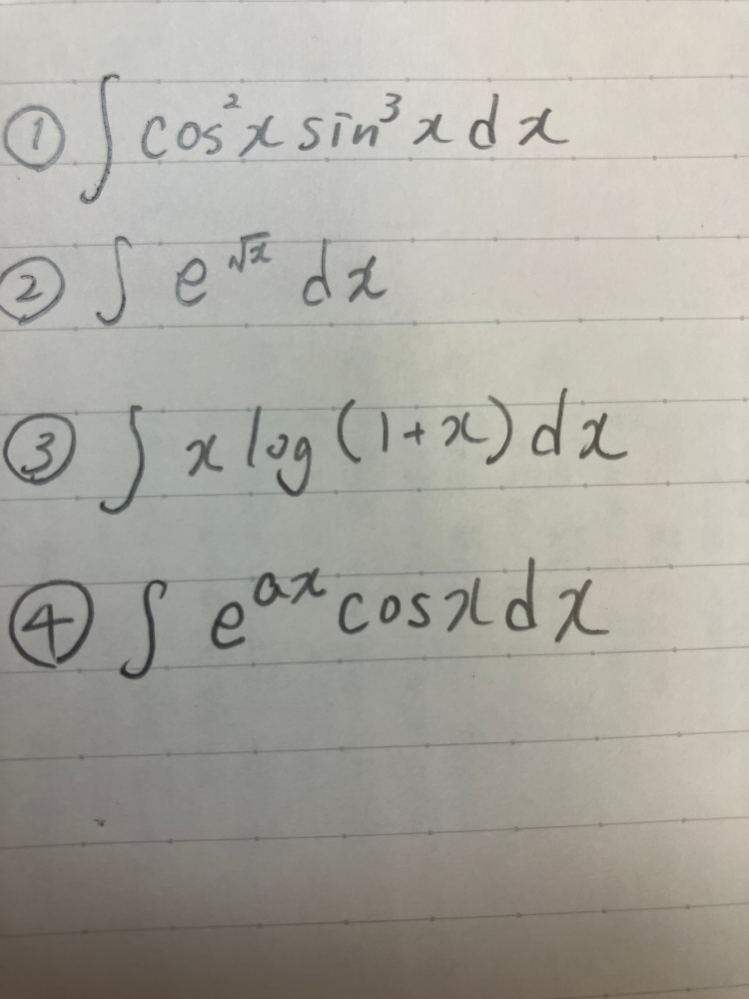 ① ∫ cos²x sin³x dx
② ∫ e^√x dx
③ ∫ x log(1+x) dx
④ ∫ e^ax cosx dx